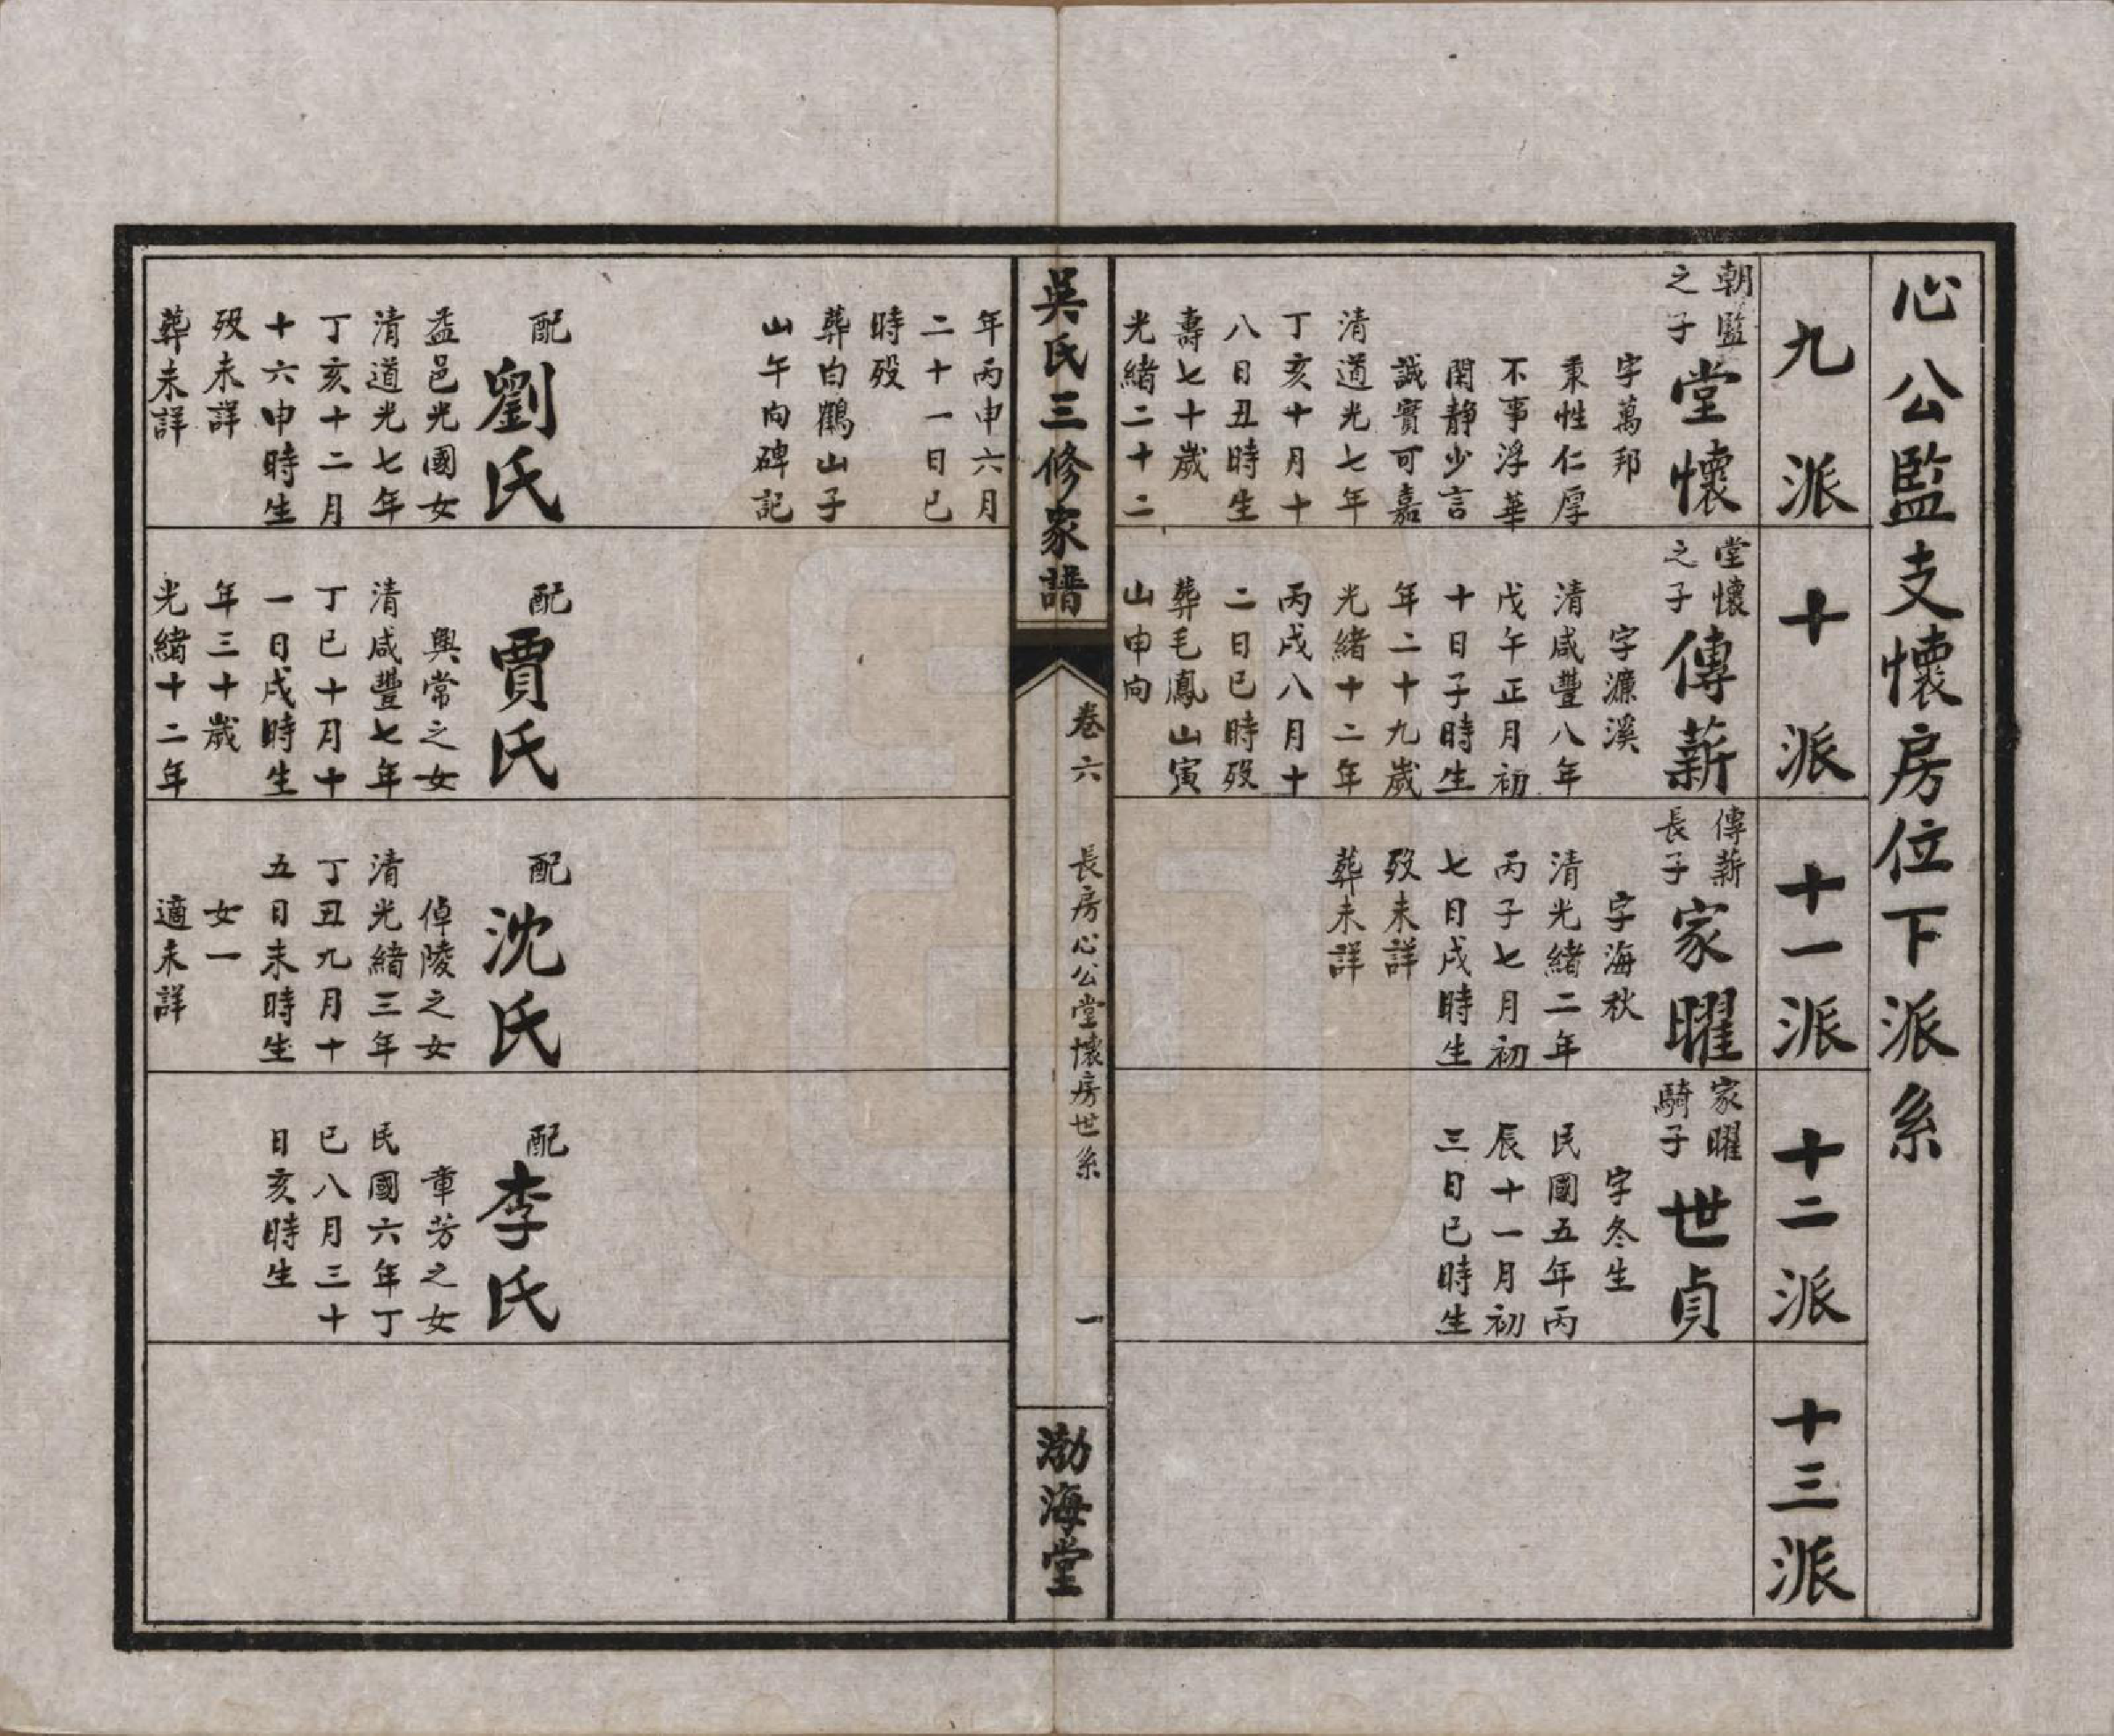 心公監支懷房位下派系
九派
朝監
之子
堂懷
字萬邦
秉性仁厚
不事浮華
閑靜少言
誠實可嘉
清道光七年
丁亥十月十
八日丑時生
壽七十歲
光緒二十二
年丙申六月
二十一日巳
時歿
葬白鶴山子
山午向碑記
配
劉氏
益邑光國女
清道光七年
丁亥十二月
十六申時生
歿未詳
葬未詳
十派
堂懷
之子
傳薪
字濂溪
清咸豐八年
戊午正月初
十日子時生
年二十九歲
光緒十二年
丙戌八月十
二日巳時歿
葬毛鳳山寅
山申向
配
賈氏
興常之女
清咸豐七年
丁巳十月十
一日戌時生
年三十歲
光緒十二年
十一派
傳薪
長子
家曜
字海秋
清光緒二年
丙子七月初
七日戌時生
歿未詳
葬未詳
配
沈氏
倬陵之女
清光緒三年
丁丑九月十
五日未時生
女一
適未詳
十二派
家曜
騎子
世貞
字冬生
民國五年丙
辰十一月初
三日巳時生
配
李氏
章芳之女
民國六年丁
巳八月三十
日亥時生
十三派
吳氏三修家譜
卷六
長房心公堂懷房世系
一
渤海堂